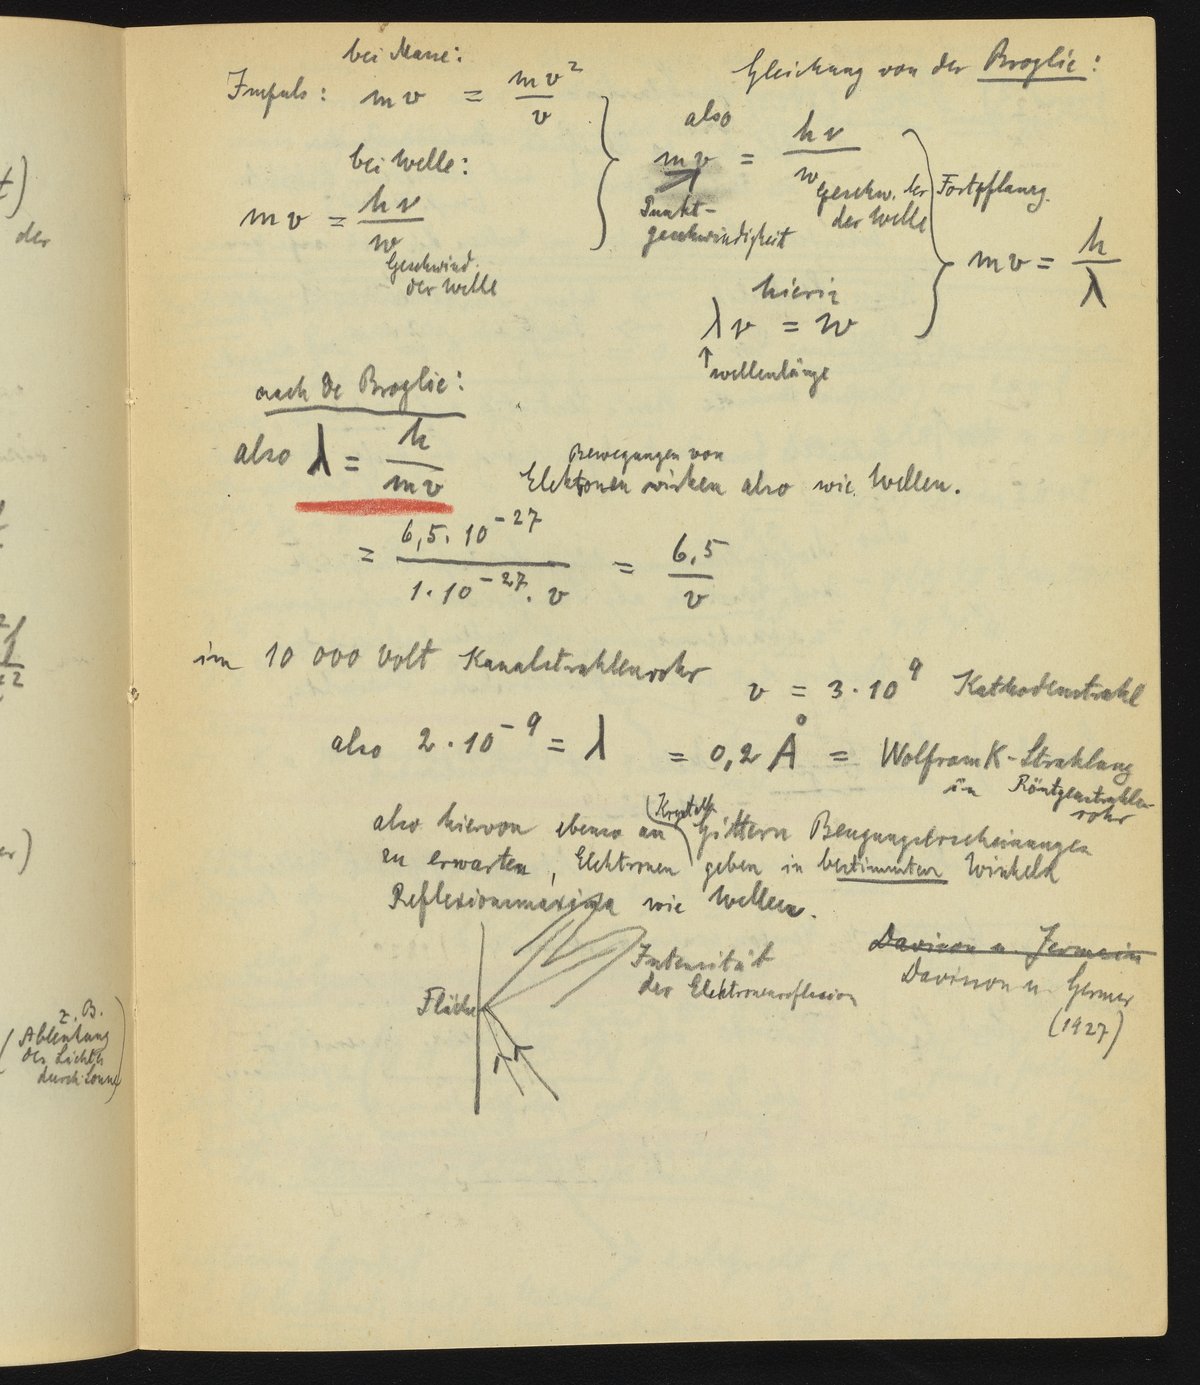 bei Masse:
Impuls: mv = mv²/v
bei Welle:
mv = hν/w
Geschwind.
der Welle
Gleichung von der Broglie:
also
mv = hν/w
Punkt-
geschwindigkeit
Geschw. der Fortpflanzg.
der Welle
hierin
λν = w
↑ Wellenlänge
mv = h/λ
nach de Broglie:
also λ = h/mv
Bewegungen von
Elektronen wirken also wie Wellen.
= 6,5·10⁻²⁷ / 1·10⁻²⁷·v = 6,5/v
im 10 000 Volt Kanalstrahlenrohr
v = 3·10⁹ Kathodenstrahl
also 2·10⁻⁹ = λ = 0,2 Å = Wolfram K-Strahlung
in Röntgenstrahlen-
rohr
also hiervon ebenso an (Krystall) Gittern Beugungserscheinungen
zu erwarten, Elektronen geben in bestimmten Winkeln
Reflexionsmaxima wie Wellen.
Fläche
Intensität
der Elektronenreflexion
Davison u. Jermain
Davisson u. Germer
(1927)
t)
der
er)
z. B.
(Ablenkung
des Lichts
durch Sonne)